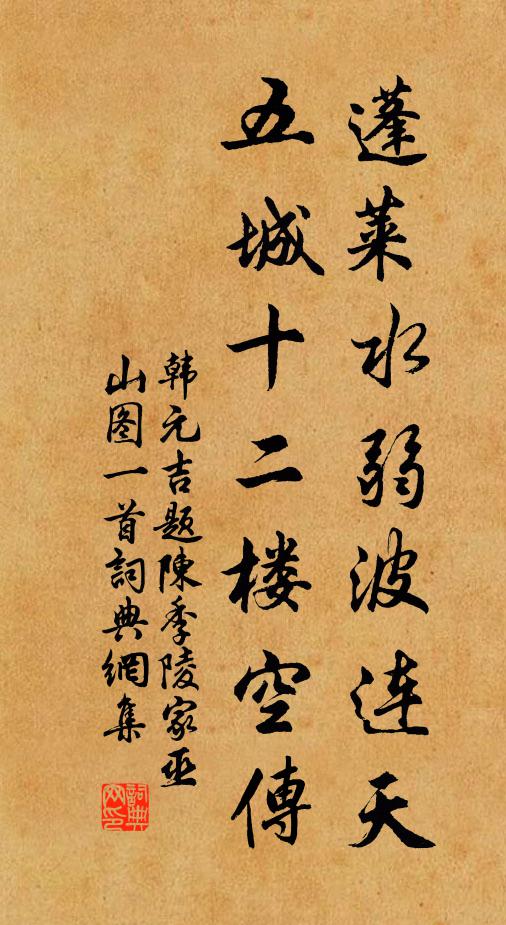 蓬莱水弱波连天
五城十二楼空傳
韩元吉题陳季陵家巫
山图一首詞典網集
詞典
网印